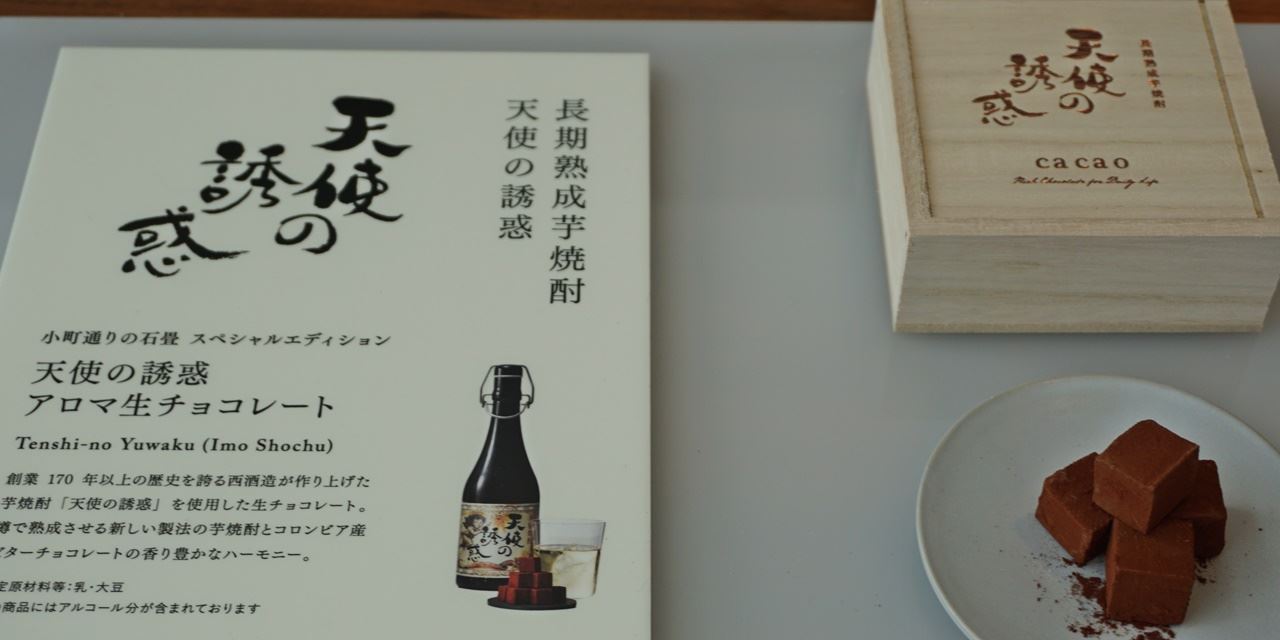 長期熟成芋焼酎
天使の誘惑
天使の誘惑
小町通りの石畳 スペシャルエディション
天使の誘惑
アロマ生チョコレート
Tenshi-no Yuwaku (Imo Shochu)
創業 170 年以上の歴史を誇る西酒造が作り上げた
芋焼酎「天使の誘惑」を使用した生チョコレート。
樽で熟成させる新しい製法の芋焼酎とコロンビア産
ターチョコレートの香り豊かなハーモニー。
定原材料等：乳・大豆
商品にはアルコール分が含まれております
天使の誘惑
長期熟成芋焼酎
天使の誘惑
cacao
Rich Chocolate for Daily Life